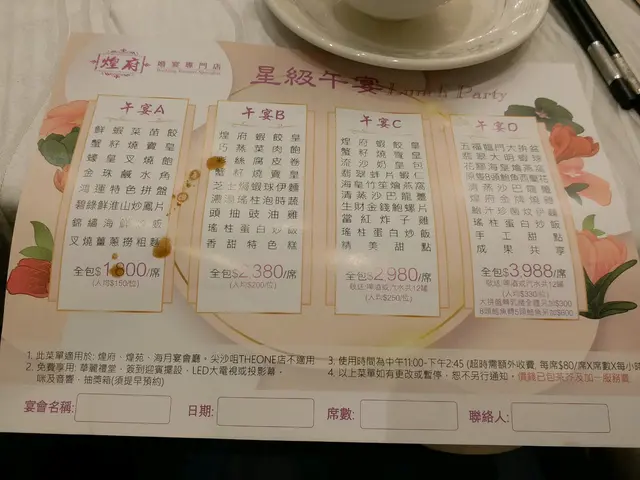 煌府
婚宴專門店
星級午宴 Lunch Party
午宴A
鮮蝦菜苗餃
蟹籽燒賣皇
蠔皇叉燒飽
金珠鹹水角
鴻運特色拼盤
碧綠鮮淮山炒鳳片
錦繡海鮮炒飯
叉燒薑蔥撈粗麵
全包$1,600/席
(人均$150/位)
午宴B
煌府蝦餃皇
巧蒸菜肉飽
蟹籽燒賣皇
瑤柱蛋白炒飯
頭抽豉油雞
香甜特色糕
全包$2,380/席
(人均$200/位)
午宴C
煌府蝦餃皇
蟹籽燒賣皇
流沙奶皇包
翡翠蚌片蝦仁
海皇竹笙燴燕窩
清蒸沙巴龍躉
生財金錢鮑螺片
當紅炸子雞
瑤柱蛋白炒飯
精美甜點
全包$2,980/席
敬送:啤酒或汽水共12罐
(人均$250/位)
午宴D
五福臨門大拼盆
翡翠大明蝦球
花膠海皇燴燕窩
清蒸沙巴龍躉
煌府金牌燒雞
鮑汁珍菌炆伊麵
瑤柱蛋白炒飯
手工甜點
成果共享
全包$3,988/席
敬送:啤酒或汽水共12罐
(人均$330/位)
1. 此菜單適用於: 煌府、煌苑、海月宴會廳。尖沙咀THEONE店不適用
2. 免費享用: 華麗禮堂、簽到迎賓擺設、LED大電視或投影幕、
咪及音響、抽獎箱(須提早預約)
3. 使用時間為中午11:00-下午2:45 (超時需額外收費, 每席$80/席X席數X每小時
4. 以上菜單如有更改或暫停，恕不另行通知。價錢已包茶沙及加一服務費
宴會名稱:
日期:
席數:
聯絡人: